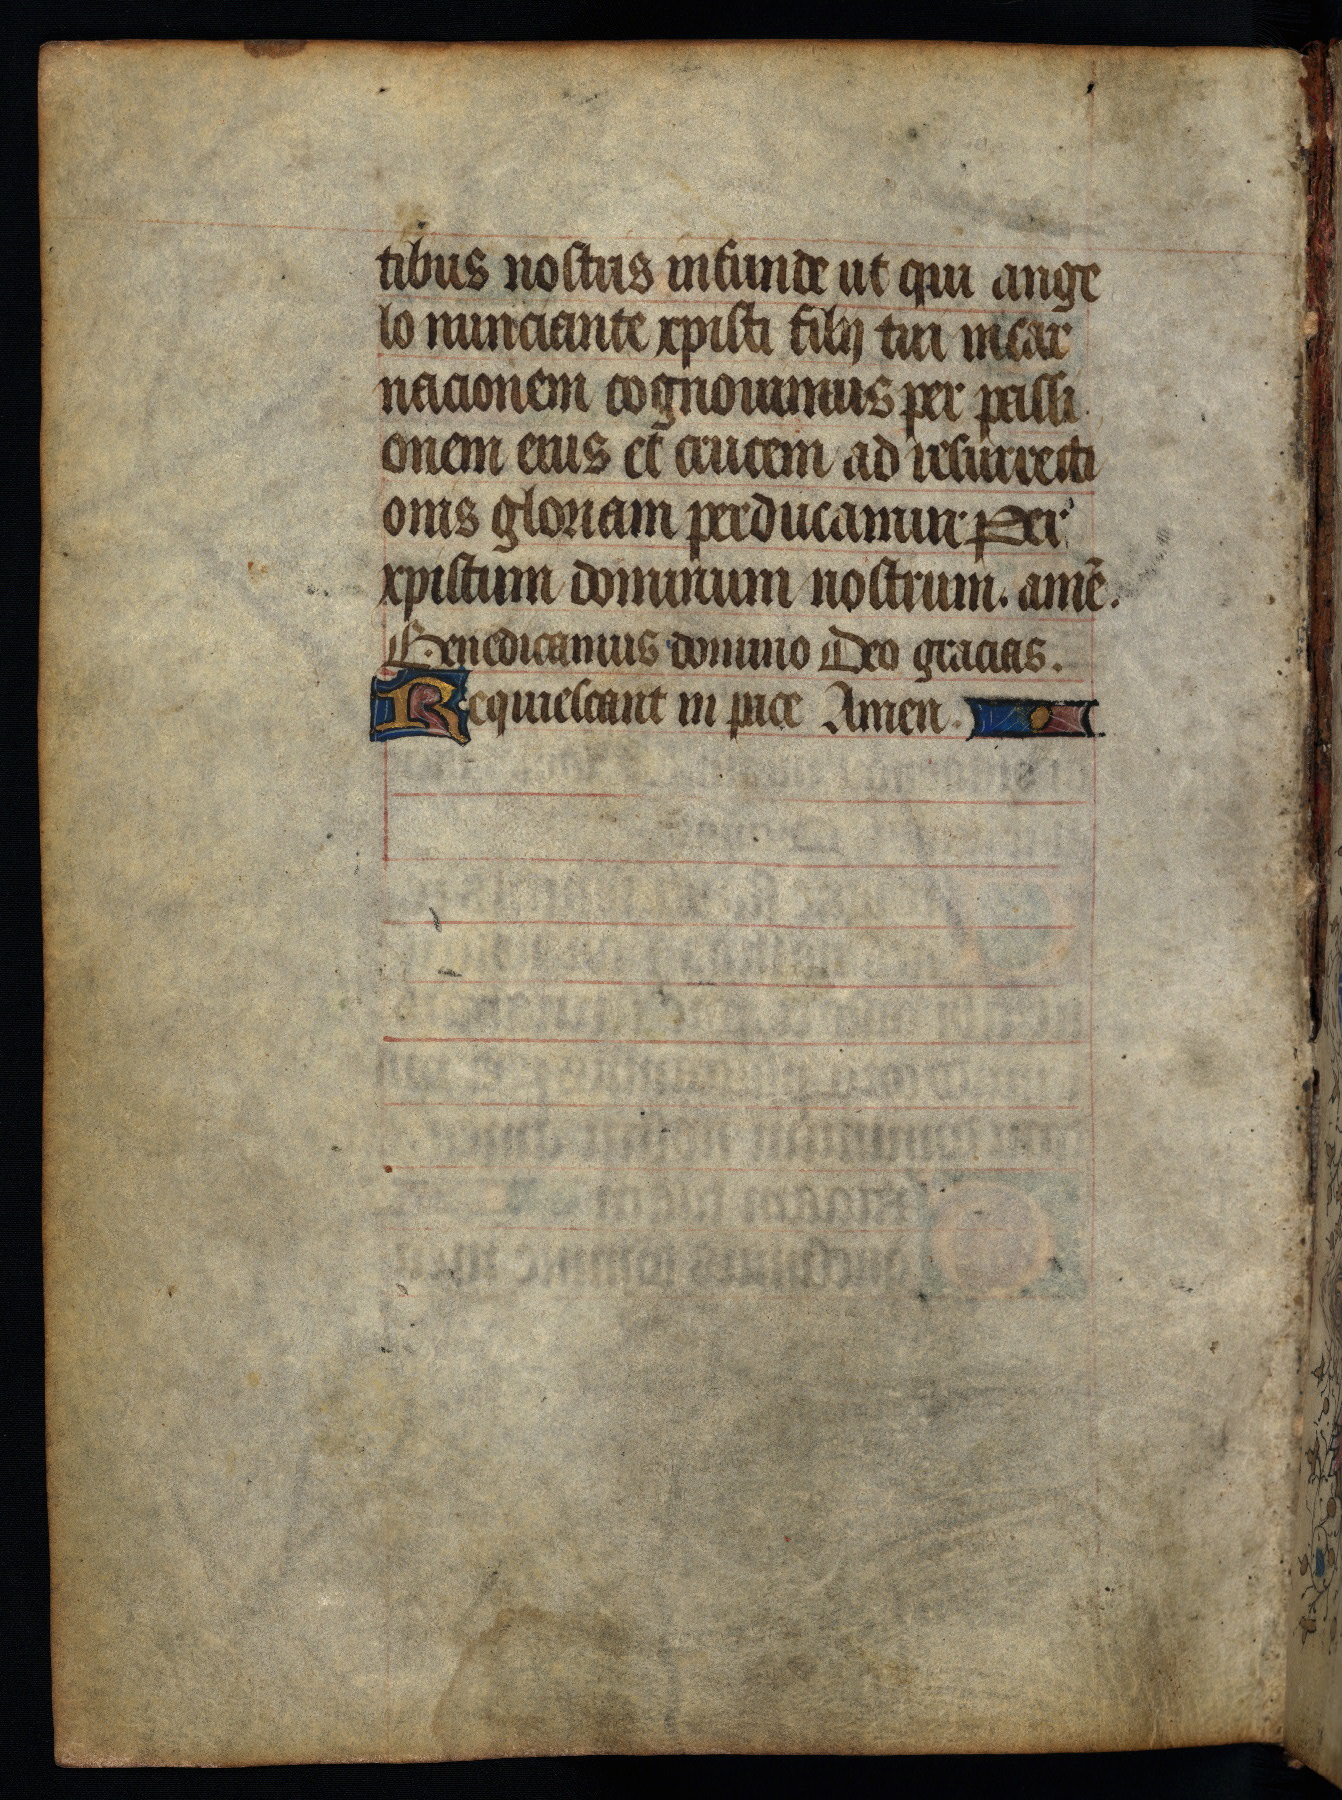 tibus nostris infunde ut qui ange
lo nunciante xpisti filij tui incar
nacionem cognouimus per passi
onem eius et crucem ad resurrecti
onis gloriam perducamur. Per
xpistum dominum nostrum. amē.
Benedicamus domino Deo gracias.
Requiescant in pace Amen.